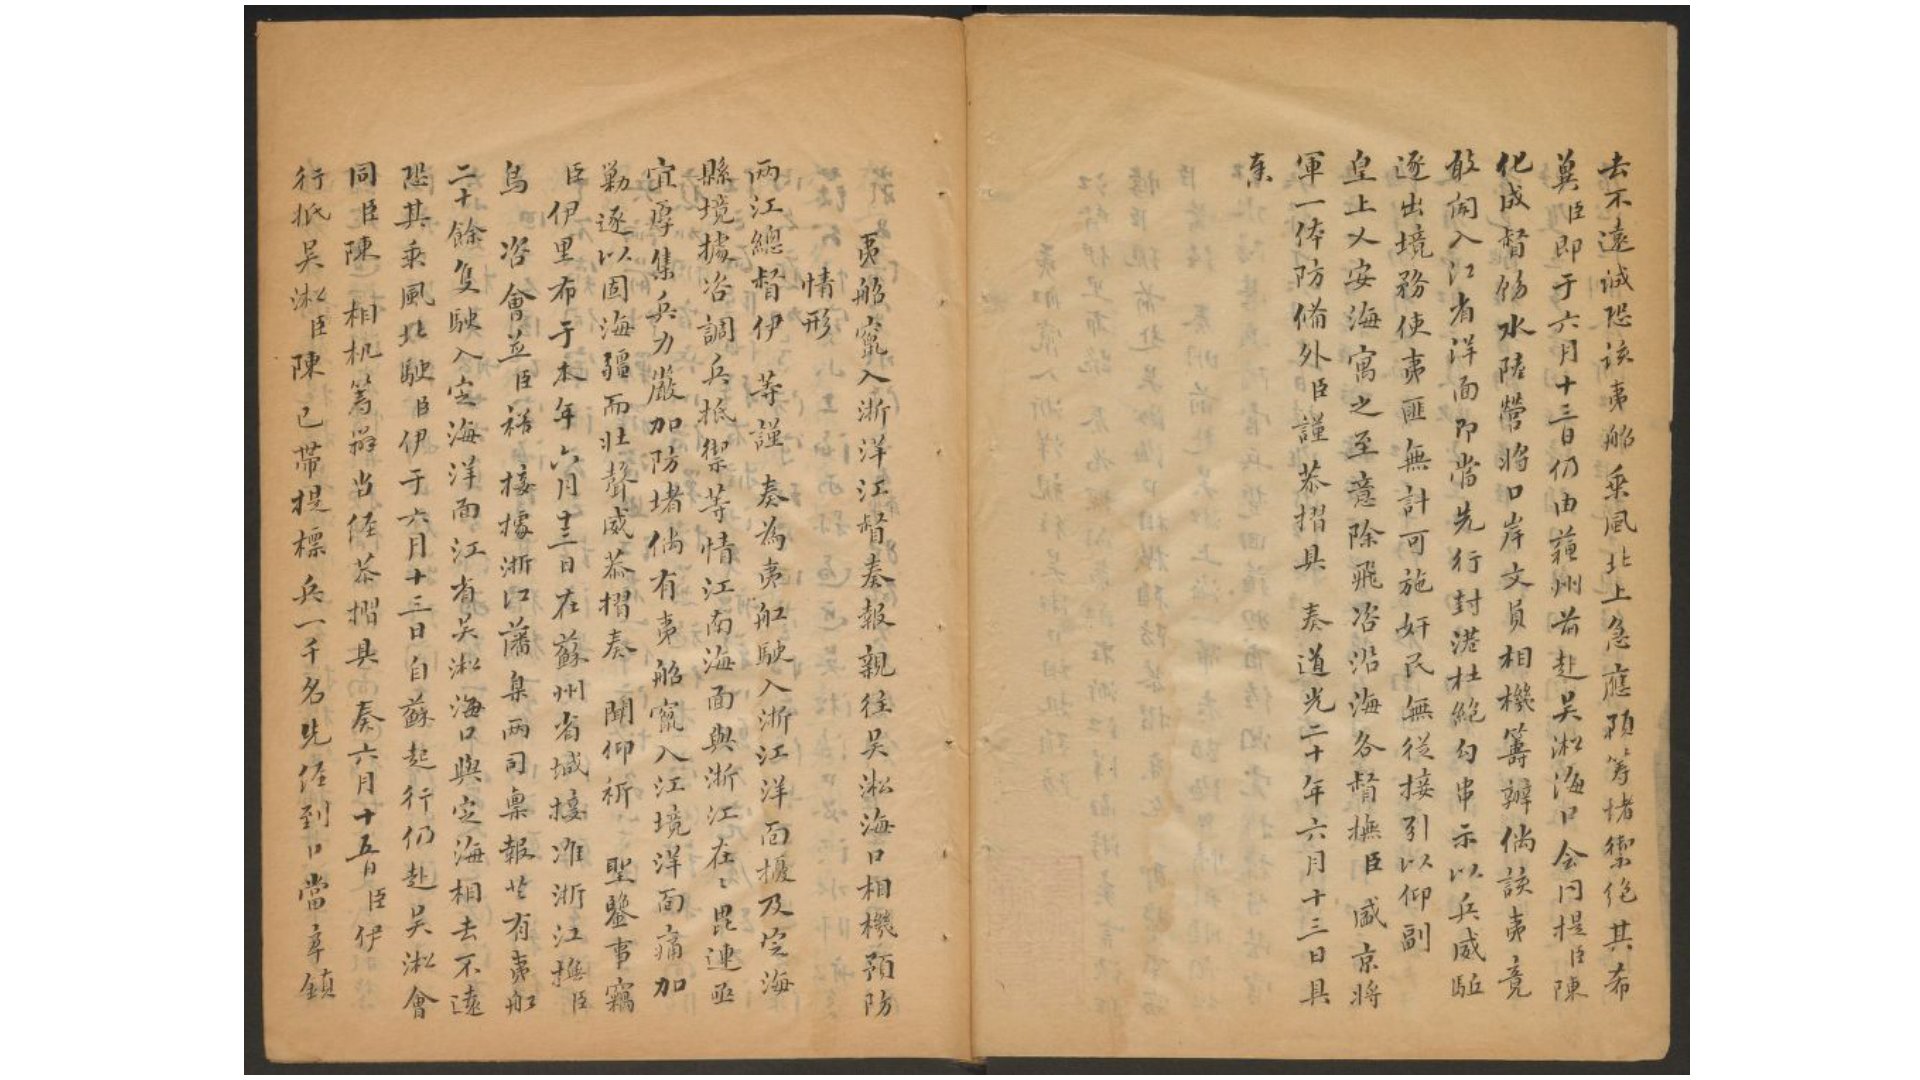 去不遠誠恐該夷船乘風北上急應預籌堵禦絕其希
冀臣即于六月十三日仍由蘓州前赴吳淞海口会同提臣陳
化成督飭水陸營將口岸文員相機籌辦倘該夷竟
敢闯入江省洋面即當先行封港杜絕勾串示以兵威駈
逐出境務使夷匪無計可施奸民無從接引以仰副
皇上乂安海寓之至意除飛咨沿海各督撫臣盛京將
軍一体防俻外臣謹恭摺具 奏道光二十年六月十三日具
奏
夷船竄入浙洋江督奏報親往吳淞海口相機預防
情形
兩江總督伊 等謹 奏為夷舡駛入浙江洋面擾及定海
縣境據咨調兵抵禦等情江南海面與浙江在〻毘連亟
宜厚集兵力嚴加防堵倘有夷船竄入江境洋面痛加
勦逐以固海疆而壯聲威恭摺奏 聞仰祈 聖鑒事竊
臣伊里布于本年六月十三日在蘇州省城接准浙江撫臣
烏 咨會並臣裕 接據浙江藩臬兩司稟報其有夷舡
二十餘隻駛入定海洋面江省吳淞海口與定海相去不遠
恐其乘風北駛臣伊于六月十三日自蘇起行仍赴吳淞會
同臣陳 相机籌辦当經恭摺具奏六月十五日臣伊
行抵吳淞臣陳 已帶提標兵一千名先經到口當率鎮